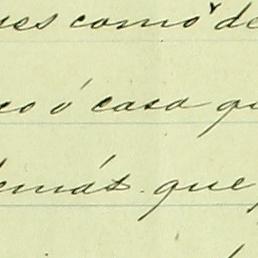 ses como de
co ó casa qu
demás que